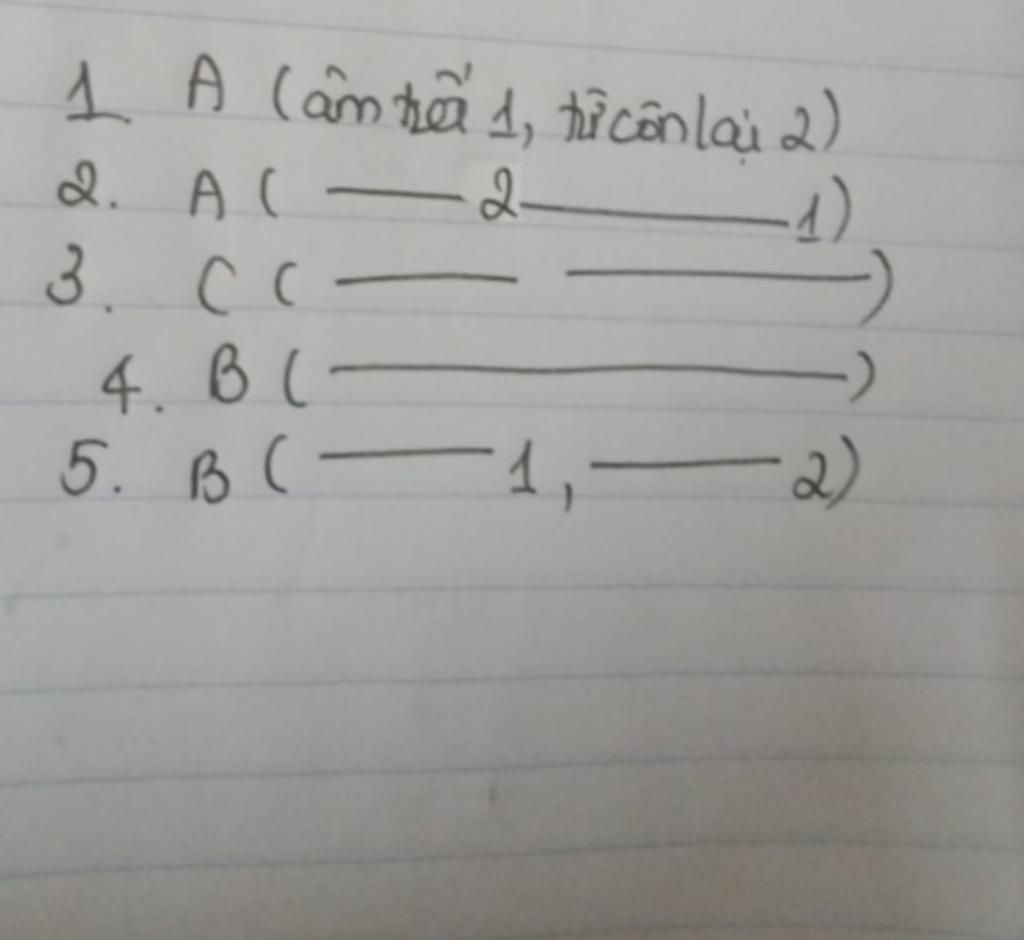 1 A (âm tiết 1, từ còn lại 2)
2. A ( —— 2 ———— 1)
3. C ( —— ————)
4. B ( ————————)
5. B ( —— 1, —— 2)